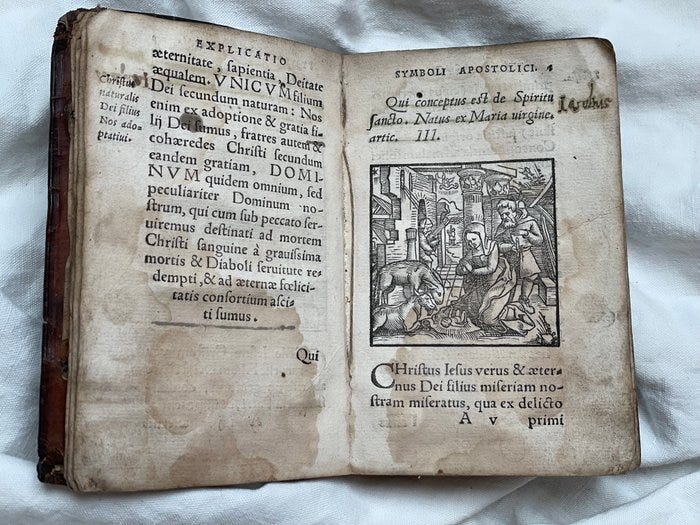 EXPLICATIO
æternitate, sapientia, Deitate
æqualem. VNICVM filium
Dei secundum naturam: Nos
enim ex adoptione & gratia fi-
lij Dei sumus, fratres autem &
cohæredes Christi secundum
eandem gratiam, DOMI-
NVM quidem omnium, sed
peculiariter Dominum no-
strum, qui cum sub peccato ser-
uiremus destinati ad mortem
Christi sanguine à grauissima
mortis & Diaboli seruitute re-
dempti, & ad æternæ fœlici-
tatis consortium asci-
ti sumus.
Christus
naturalis
Dei filius
Nos ado-
ptatiui.
Qui
SYMBOLI APOSTOLICI.
Qui conceptus est de Spiritu
sancto. Natus ex Maria virgine.
artic. III.
Iacobus
CHristus Iesus verus & æter-
nus Dei filius miseriam no-
stram miseratus, qua ex delicto
A v primi